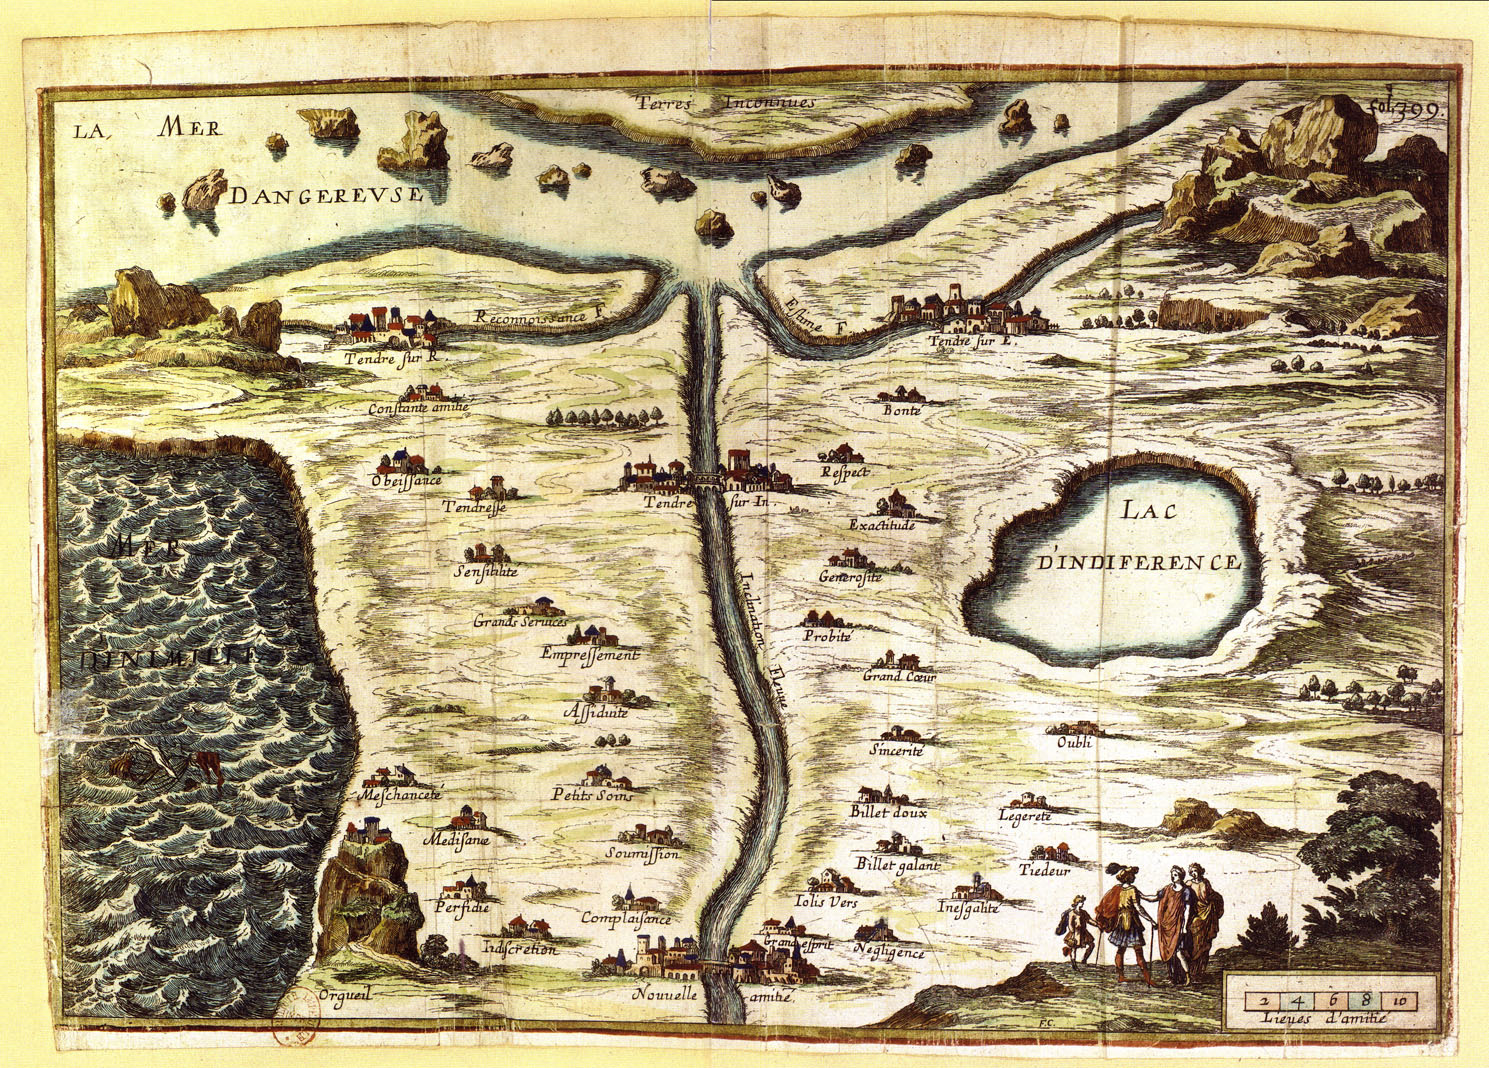 Terres Inconnues
fol. 399.
LA MER
DANGEREVSE
Reconnoissance F.
Estime F.
Tendre sur R.
Tendre sur E.
Constante amitié
Bonté
Obeissance
Respect
Tendresse
Tendre sur In.
Exactitude
LAC
D'INDIFERENCE
MER
D'INIMITIE
Sensibilité
Generosité
Inclination Fleuve
Grands Services
Probité
Empressement
Grand Cœur
Assiduité
Sincerité
Oubli
Meschanceté
Petits Soins
Billet doux
Legereté
Medisance
Soumission
Billet galant
Tiedeur
Perfidie
Complaisance
Iolis Vers
Inesgalité
Indiscretion
Grand esprit
Negligence
Orgueil
Nouvelle amitié.
F.C.
2 4 6 8 10
Lieues d'amitié